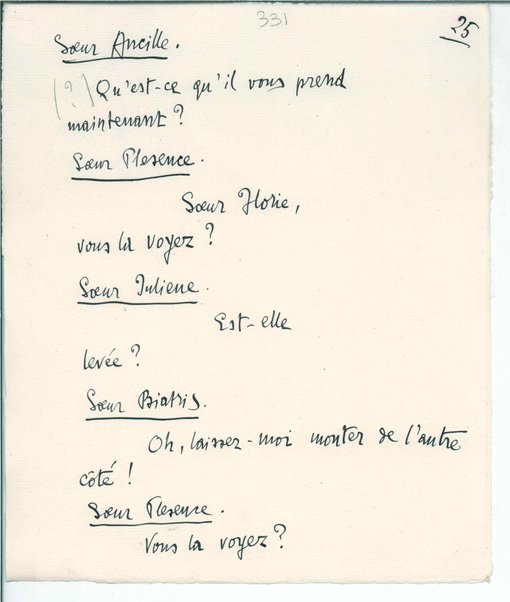 331
25
Sœur Ancille.
(?) Qu'est-ce qu'il vous prend
maintenant?
Sœur Plesence.
Sœur Florie,
vous la voyez?
Sœur Juliene.
Est-elle
levée?
Sœur Biatris.
Oh, laissez-moi monter de l'autre
côté!
Sœur Plesence.
Vous la voyez?